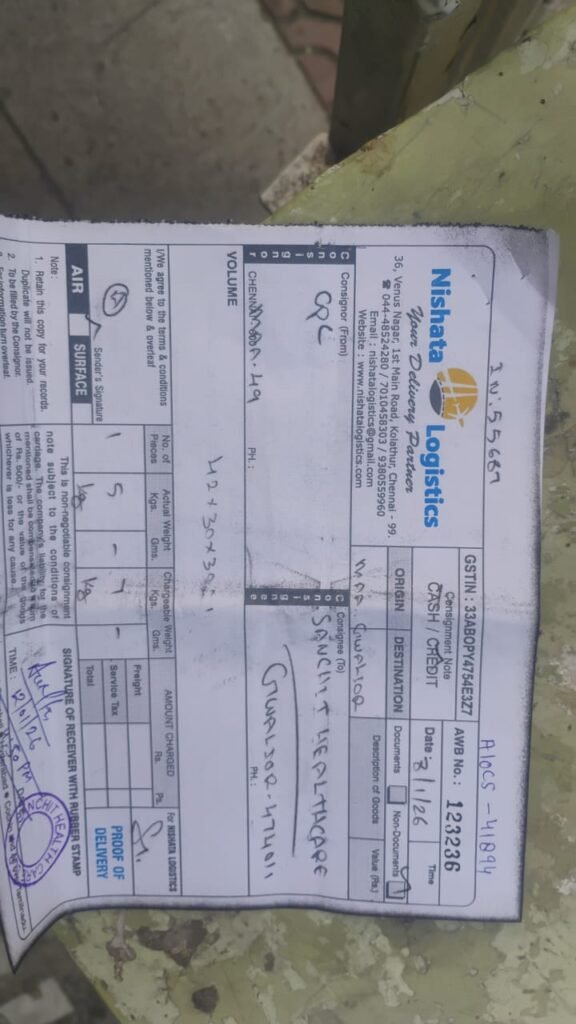 IN: 55687
A10CS - 41894
Nishata Logistics
Your Delivery Partner
36, Venus Nagar, 1st Main Road, Kolathur, Chennai - 99.
☎ 044-48524280 / 7010458303 / 9380559960
Email : nishatalogistics@gmail.com
Website : www.nishatalogistics.com
GSTIN : 33ABOPY4754E3Z7
Consignment Note
CASH / CREDIT
AWB No.: 123236
Date 8/1/26
Time
ORIGIN
DESTINATION
MAA
GWALIOR
Documents
Non-Documents
Description of Goods
Value (Rs.)
Consignor
Consignor (From)
CPC
CHENNAI
PH.:
Consignee
Consignee (To)
SANCHIT HEALTHCARE
GWALIOR-474011
PH.:
VOLUME
42×30×30-1
I/We agree to the terms & conditions
mentioned below & overleaf
Sender's Signature
No. of
Pieces
1
Actual Weight
Kgs.
Gms.
5
-
kg
Chargeable Weight
Kgs.
Gms.
7
-
kg
AMOUNT CHARGED
Rs.
Ps.
Freight
Service Tax
Total
For NISHATA LOGISTICS
PROOF OF
DELIVERY
AIR
SURFACE
Note :
1. Retain this copy for your records.
Duplicate will not be issued.
2. To be filled by the Consignor.
For information turn overleaf.
This is non-negotiable consignment
note subject to the conditions of
carriage. The company's liability for the
mentioned shall be
of Rs. 500/- or the value of the goods
whichever is less for any cause
SIGNATURE OF RECEIVER WITH RUBBER STAMP
12/01/26
TIME:
PM